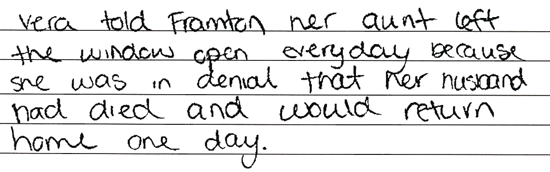 vera told Framton her aunt left
the window open everyday because
she was in denial that her husband
had died and would return
home one day.